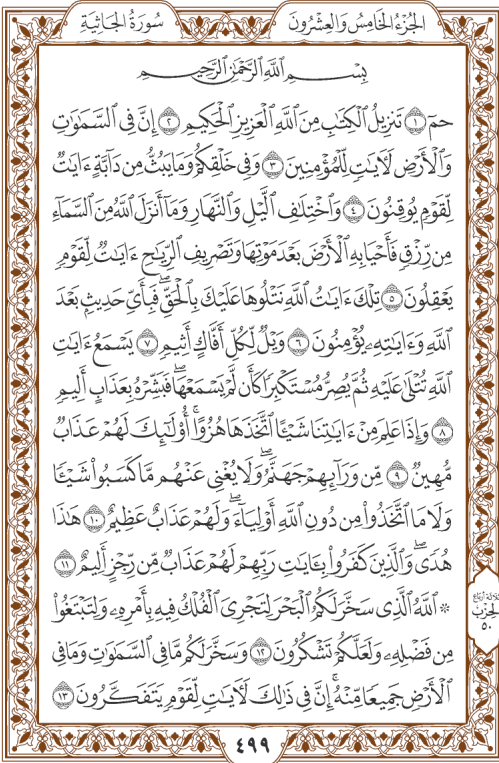 سُورَةُ الجَاثِيَةِ الجُزْءُ الخَامِسُ وَالعِشْرُونَ
بِسْمِ ٱللَّهِ ٱلرَّحْمَٰنِ ٱلرَّحِيمِ
حمٓ ١ تَنزِيلُ ٱلْكِتَٰبِ مِنَ ٱللَّهِ ٱلْعَزِيزِ ٱلْحَكِيمِ ٢ إِنَّ فِى ٱلسَّمَٰوَٰتِ
وَٱلْأَرْضِ لَءَايَٰتٍ لِّلْمُؤْمِنِينَ ٣ وَفِى خَلْقِكُمْ وَمَا يَبُثُّ مِن دَآبَّةٍ ءَايَٰتٌ
لِّقَوْمٍ يُوقِنُونَ ٤ وَٱخْتِلَٰفِ ٱلَّيْلِ وَٱلنَّهَارِ وَمَآ أَنزَلَ ٱللَّهُ مِنَ ٱلسَّمَآءِ
مِن رِّزْقٍ فَأَحْيَا بِهِ ٱلْأَرْضَ بَعْدَ مَوْتِهَا وَتَصْرِيفِ ٱلرِّيَٰحِ ءَايَٰتٌ لِّقَوْمٍ
يَعْقِلُونَ ٥ تِلْكَ ءَايَٰتُ ٱللَّهِ نَتْلُوهَا عَلَيْكَ بِٱلْحَقِّ ۖ فَبِأَىِّ حَدِيثٍۭ بَعْدَ
ٱللَّهِ وَءَايَٰتِهِۦ يُؤْمِنُونَ ٦ وَيْلٌ لِّكُلِّ أَفَّاكٍ أَثِيمٍ ٧ يَسْمَعُ ءَايَٰتِ
ٱللَّهِ تُتْلَىٰ عَلَيْهِ ثُمَّ يُصِرُّ مُسْتَكْبِرًا كَأَن لَّمْ يَسْمَعْهَا ۖ فَبَشِّرْهُ بِعَذَابٍ أَلِيمٍ
٨ وَإِذَا عَلِمَ مِنْ ءَايَٰتِنَا شَيْـًٔا ٱتَّخَذَهَا هُزُوًا ۚ أُو۟لَٰٓئِكَ لَهُمْ عَذَابٌ
مُّهِينٌ ٩ مِّن وَرَآئِهِمْ جَهَنَّمُ ۖ وَلَا يُغْنِى عَنْهُم مَّا كَسَبُوا۟ شَيْـًٔا
وَلَا مَا ٱتَّخَذُوا۟ مِن دُونِ ٱللَّهِ أَوْلِيَآءَ ۖ وَلَهُمْ عَذَابٌ عَظِيمٌ ١٠ هَٰذَا
هُدًى ۖ وَٱلَّذِينَ كَفَرُوا۟ بِـَٔايَٰتِ رَبِّهِمْ لَهُمْ عَذَابٌ مِّن رِّجْزٍ أَلِيمٌ ١١
۞ ٱللَّهُ ٱلَّذِى سَخَّرَ لَكُمُ ٱلْبَحْرَ لِتَجْرِىَ ٱلْفُلْكُ فِيهِ بِأَمْرِهِۦ وَلِتَبْتَغُوا۟
مِن فَضْلِهِۦ وَلَعَلَّكُمْ تَشْكُرُونَ ١٢ وَسَخَّرَ لَكُم مَّا فِى ٱلسَّمَٰوَٰتِ وَمَا فِى
ٱلْأَرْضِ جَمِيعًا مِّنْهُ ۚ إِنَّ فِى ذَٰلِكَ لَءَايَٰتٍ لِّقَوْمٍ يَتَفَكَّرُونَ ١٣
ثلاثة أرباع
الحزب
٥٠
٤٩٩